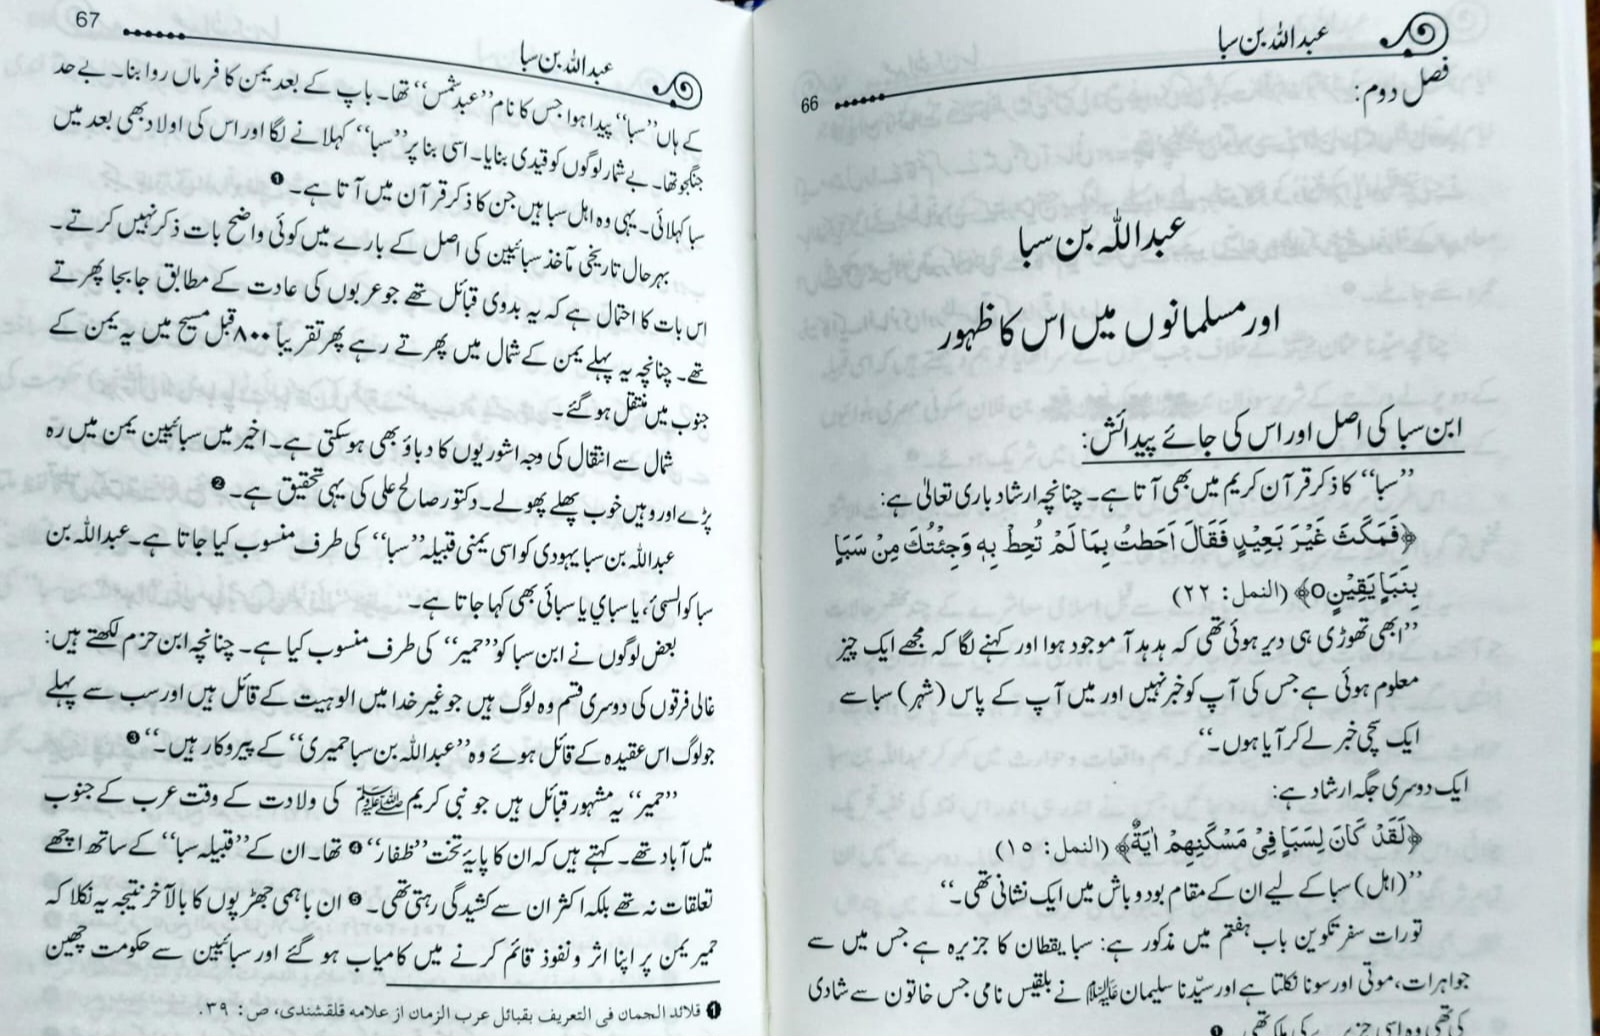 عبداللہ بن سبا
66
فصل دوم:
عبداللہ بن سبا
اور مسلمانوں میں اس کا ظہور
ابن سبا کی اصل اور اس کی جائے پیدائش:
”سبا“ کا ذکر قرآن کریم میں بھی آتا ہے۔ چنانچہ ارشاد باری تعالیٰ ہے:
﴿فَمَكَثَ غَيْرَ بَعِيْدٍ فَقَالَ اَحَطْتُ بِمَا لَمْ تُحِطْ بِهٖ وَجِئْتُكَ مِنْ سَبَاٍ
بِنَبَاٍ يَّقِيْنٍO﴾ (النمل: ٢٢)
”ابھی تھوڑی ہی دیر ہوئی تھی کہ ہدہد آ موجود ہوا اور کہنے لگا کہ مجھے ایک چیز
معلوم ہوئی ہے جس کی آپ کو خبر نہیں اور میں آپ کے پاس (شہر) سبا سے
ایک سچی خبر لے کر آیا ہوں۔“
ایک دوسری جگہ ارشاد ہے:
﴿لَقَدْ كَانَ لِسَبَاٍ فِىْ مَسْكَنِهِمْ اٰيَةٌ﴾ (النمل: ١٥)
”(اہل) سبا کے لیے ان کے مقام بود و باش میں ایک نشانی تھی۔“
تورات سفر تکوین باب ہفتم میں مذکور ہے: سبا یقطان کا جزیرہ ہے جس میں سے
جواہرات، موتی اور سونا نکلتا ہے اور سیّدنا سلیمان علیہ السلام نے بلقیس نامی جس خاتون سے شادی
کی تھی وہ اسی جزیرے کی ملکہ تھی۔ ❶
67
عبداللہ بن سبا
کے ہاں ”سبا“ پیدا ہوا جس کا نام ”عبد شمس“ تھا۔ باپ کے بعد یمن کا فرماں روا بنا۔ بے حد
جنگجو تھا۔ بے شمار لوگوں کو قیدی بنایا۔ اسی بنا پر ”سبا“ کہلانے لگا اور اس کی اولاد بھی بعد میں
سبا کہلائی۔ یہی وہ اہل سبا ہیں جن کا ذکر قرآن میں آتا ہے۔ ❶
بہرحال تاریخی مآخذ سبائیین کی اصل کے بارے میں کوئی واضح بات ذکر نہیں کرتے۔
اس بات کا احتمال ہے کہ یہ بدوی قبائل تھے جو عربوں کی عادت کے مطابق جا بجا پھرتے
تھے۔ چنانچہ یہ پہلے یمن کے شمال میں پھرتے رہے پھر تقریباً ۸۰۰ قبل مسیح میں یہ یمن کے
جنوب میں منتقل ہو گئے۔
شمال سے انتقال کی وجہ اشوریوں کا دباؤ بھی ہو سکتی ہے۔ اخیر میں سبائیین یمن میں رہ
پڑے اور وہیں خوب پھلے پھولے۔ دکتور صالح علی کی یہی تحقیق ہے۔ ❷
عبداللہ بن سبا یہودی کو اسی یمنی قبیلہ ”سبا“ کی طرف منسوب کیا جاتا ہے۔ عبداللہ بن
سبا کو السبئ، یا سباي یا سبائی بھی کہا جاتا ہے۔
بعض لوگوں نے ابن سبا کو ”حمیر“ کی طرف منسوب کیا ہے۔ چنانچہ ابن حزم لکھتے ہیں:
غالی فرقوں کی دوسری قسم وہ لوگ ہیں جو غیر خدا میں الوہیت کے قائل ہیں اور سب سے پہلے
جو لوگ اس عقیدہ کے قائل ہوئے وہ ”عبداللہ بن سبا حمیری“ کے پیروکار ہیں۔“ ❸
”حمیر“ یہ مشہور قبائل ہیں جو نبی کریم ﷺ کی ولادت کے وقت عرب کے جنوب
میں آباد تھے۔ کہتے ہیں کہ ان کا پایۂ تخت ”ظفار“ ❹ تھا۔ ان کے ”قبیلہ سبا“ کے ساتھ اچھے
تعلقات نہ تھے بلکہ اکثر ان سے کشیدگی رہتی تھی۔ ❺ ان باہمی جھڑپوں کا بالآخر نتیجہ یہ نکلا کہ
حمیر یمن پر اپنا اثر و نفوذ قائم کرنے میں کامیاب ہو گئے اور سبائیین سے حکومت چھین
❶ قلائد الجمان فی التعریف بقبائل عرب الزمان از علامہ قلقشندی، ص: ٣٩.